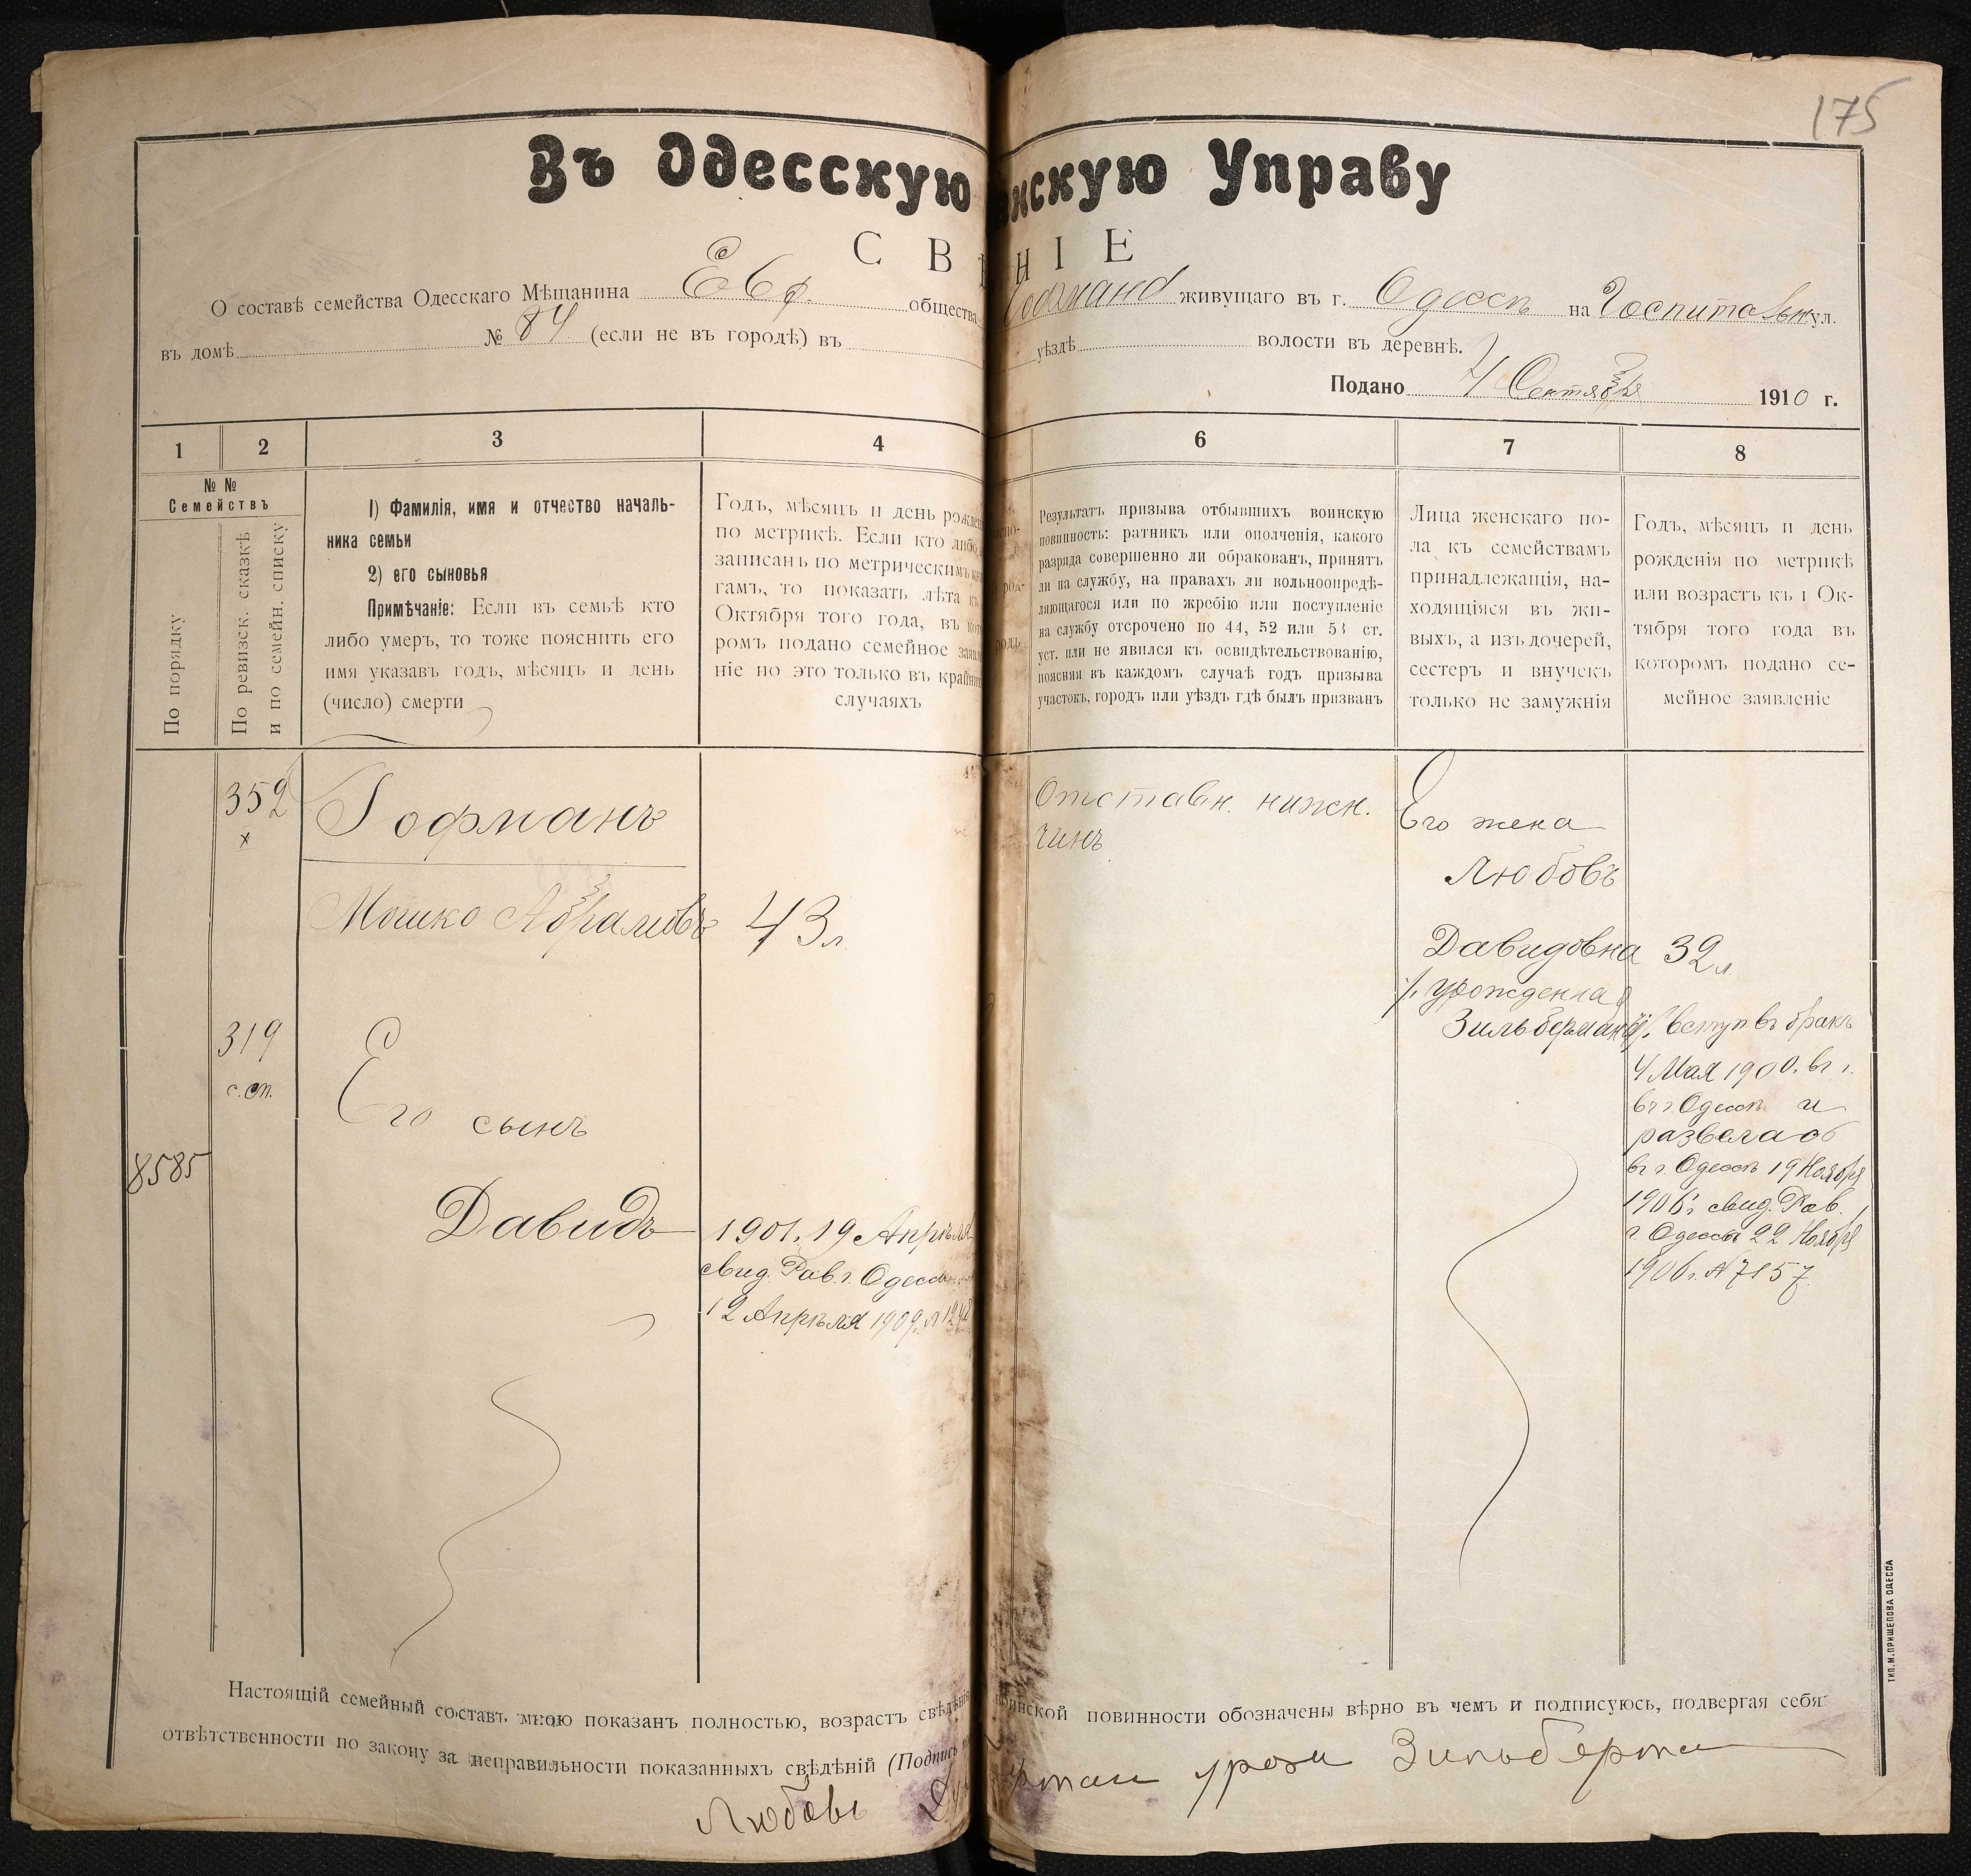 175
Въ Одесскую нскую Управу
С В НІЕ
О составѣ семейства Одесскаго Мѣщанина Евр. общества Гофмана живущаго въ г. Одессѣ на Госпитальн ул.
въ домѣ № 84 (если не въ городѣ) въ уѣздѣ волости въ деревнѣ.
Подано 4 Сентября 1910 г.
1 2 3 4 6 7 8
№ №
Семействъ
По порядку
По ревизск. сказкѣ
и по семейн. списку
1) Фамилія, имя и отчество началь-
ника семьи
2) его сыновья
Примѣчаніе: Если въ семьѣ кто
либо умеръ, то тоже пояснить его
имя указавъ годъ, мѣсяцъ и день
(число) смерти
Годъ, мѣсяцъ и день рожден
по метрикѣ. Если кто либо
записанъ по метрическимъ
гамъ, то показать лѣта
Октября того года, въ
ромъ подано семейное
ніе но это только въ крайни
случаяхъ
Результатъ призыва отбывшихъ воинскую
повинность: ратникъ или ополченія, какого
разряда совершенно ли обракованъ, принятъ
ли на службу, на правахъ ли вольноопредѣ-
ляющагося или по жребію или поступленіе
на службу отсрочено по 44, 52 или 53 ст.
уст. или не явился къ освидѣтельствованію,
поясняя въ каждомъ случаѣ годъ призыва
участокъ, городъ или уѣздъ гдѣ былъ призванъ
Лица женскаго по-
ла къ семействамъ
принадлежащія, на-
ходящіяся въ жи-
выхъ, а изъ дочерей,
сестеръ и внучекъ
только не замужнія
Годъ, мѣсяцъ и день
рожденія по метрикѣ
или возрастъ къ 1 Ок-
тября того года въ
которомъ подано се-
мейное заявленіе
352
х
Гофманъ
Мошко Абрамовъ 43 л.
319
с. сп.
Его
сынъ
8585
Давидъ
1901. 19 Апрѣля
свид. Рав. г. Одессы
12 Апрѣля 1909 г. №
Отставн. нижн.
чинъ
Его жена
Любовь
Давидовна 32 л.
/. урожденная
Зильберманъ
/. вступ въ бракъ
4 Мая 1900. въ г.
въ г. Одессѣ и
развелась
въ г. Одессѣ 19 Ноября
1906 г. свид. Рав.
г. Одессы 22 Ноября
1906 г. № 7157.
Настоящій семейный составъ мною показанъ полностью, возрастъ свѣдѣнія воинской повинности обозначены вѣрно въ чемъ и подписуюсь, подвергая себя
отвѣтственности по закону за неправильности показанныхъ свѣдѣній (Подпись
Любовь урози Зильберма
ТИП. М. ПРИЩЕПОВА ОДЕССА